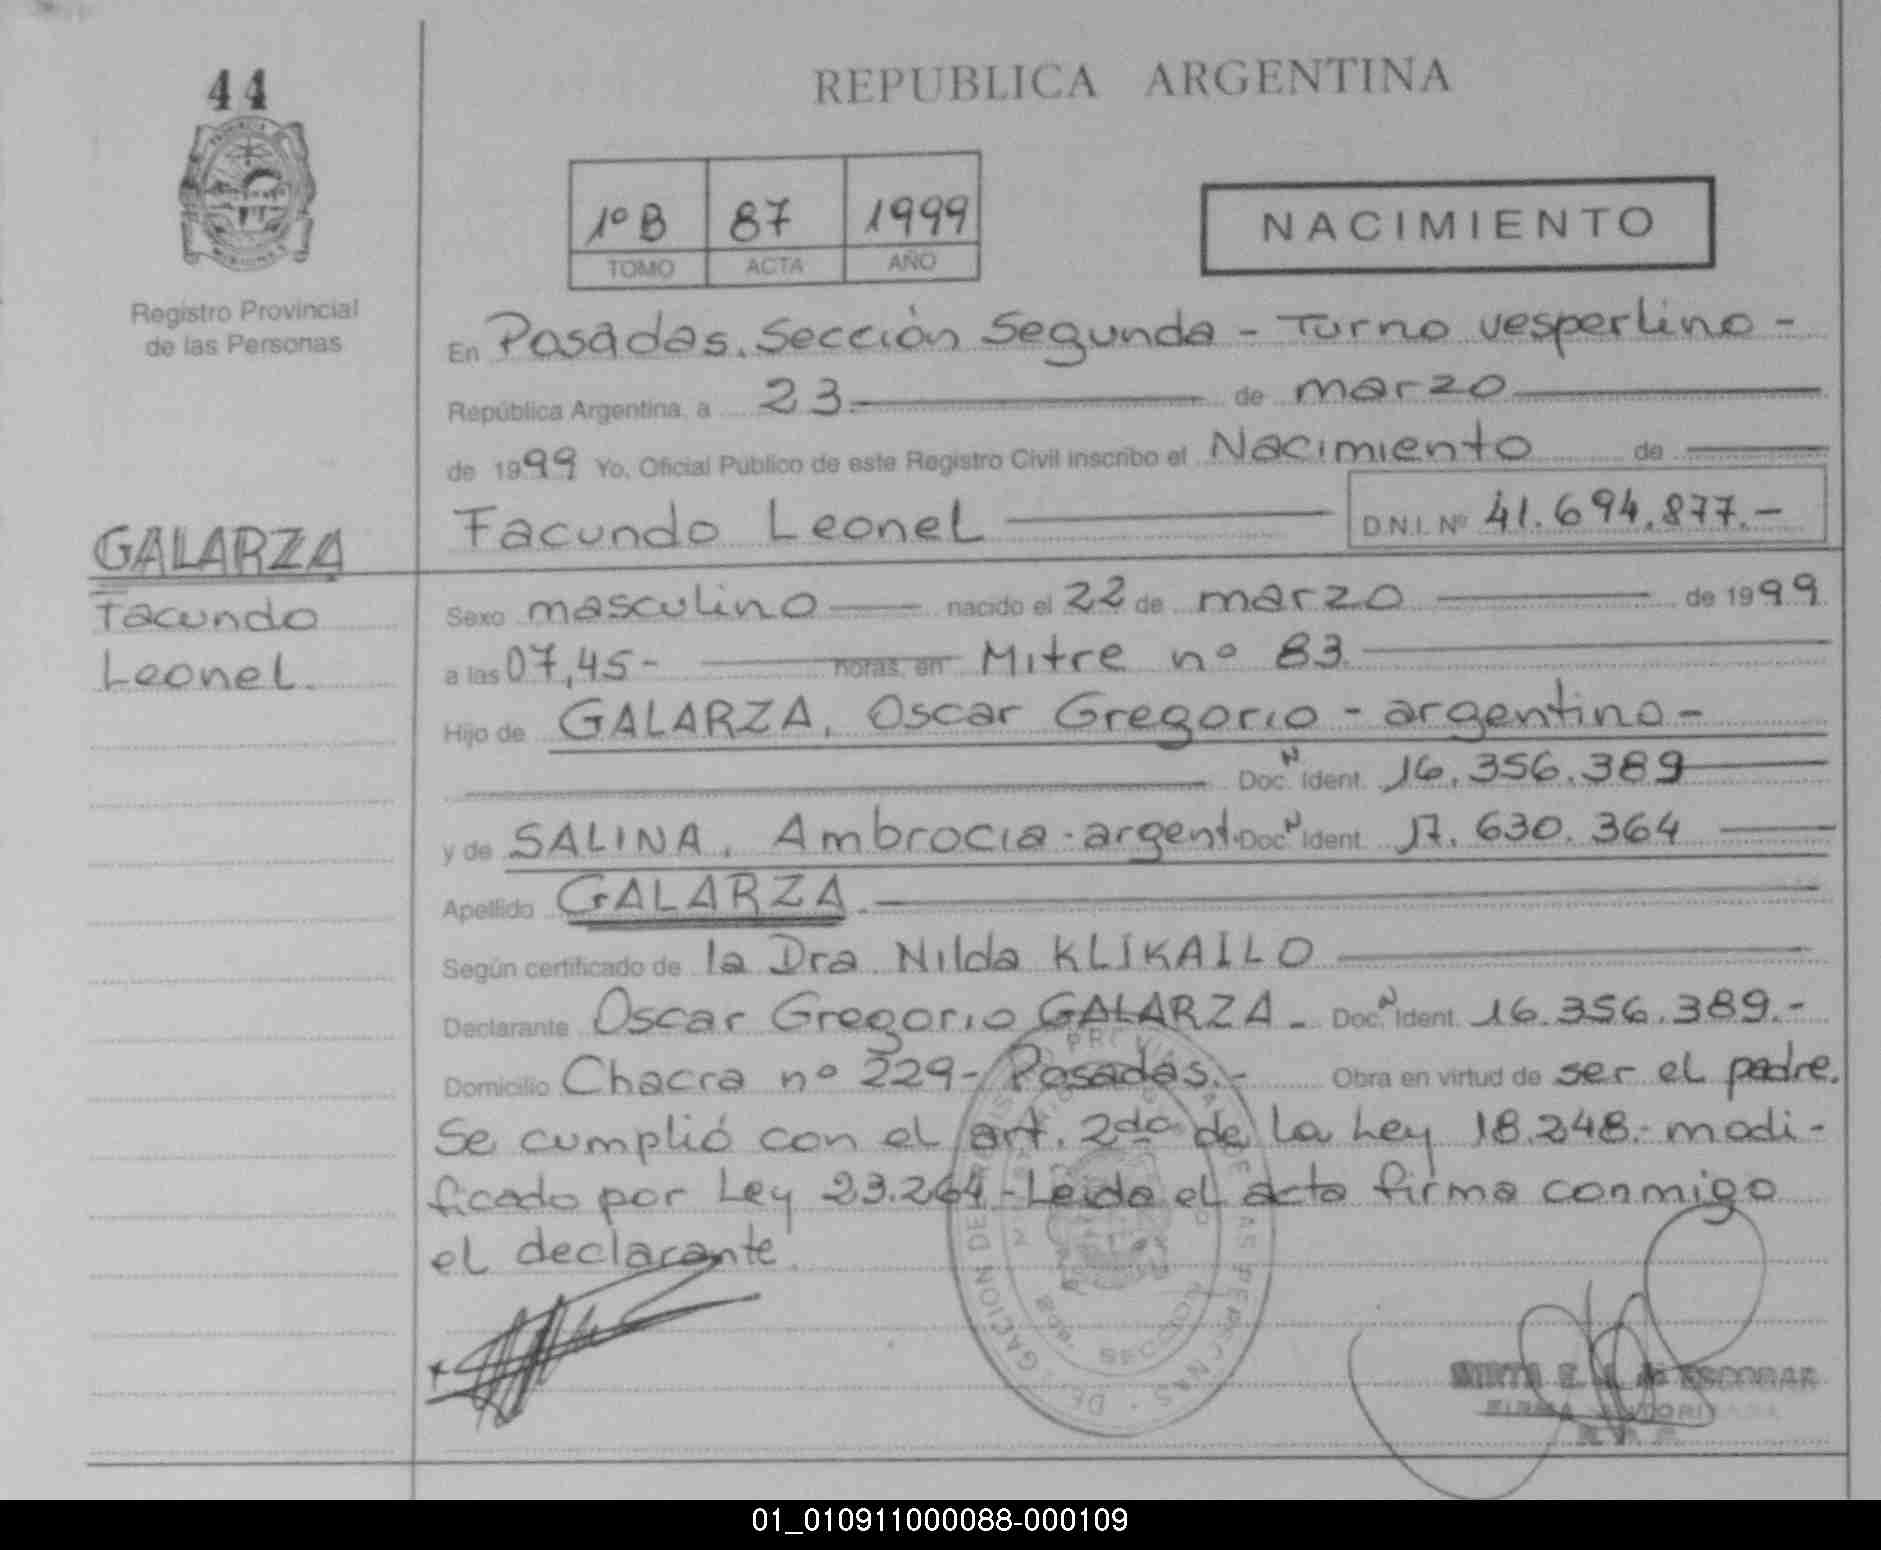 44
REPUBLICA ARGENTINA
1º B 87 1999
TOMO ACTA AÑO
NACIMIENTO
Registro Provincial
de las Personas
En Posadas. Sección Segunda - Turno vespertino -
República Argentina, a 23 de marzo
de 1999 Yo, Oficial Público de este Registro Civil inscribo el Nacimiento de
Facundo Leonel D.N.I. Nº 41.694.877.-
GALARZA
Facundo
Leonel.
Sexo masculino nacido el 22 de marzo de 1999
a las 07,45- horas, en Mitre nº 83.
Hijo de GALARZA, Oscar Gregorio - argentino -
Doc. N Ident. 16.356.389
y de SALINA, Ambrocia - argent. Doc. N Ident. 17.630.364
Apellido GALARZA.
Según certificado de la Dra Nilda KLIKAILO
Declarante Oscar Gregorio GALARZA - Doc. N Ident. 16.356.389.-
Domicilio Chacra nº 229- Posadas.- Obra en virtud de ser el padre.
Se cumplió con el art. 2do de la Ley 18.248.- modi-
ficado por Ley 23.264 - Leida el acta firma conmigo
el declarante.
ESCOBAR
FIRMA AUTORIZADA
01_010911000088-000109